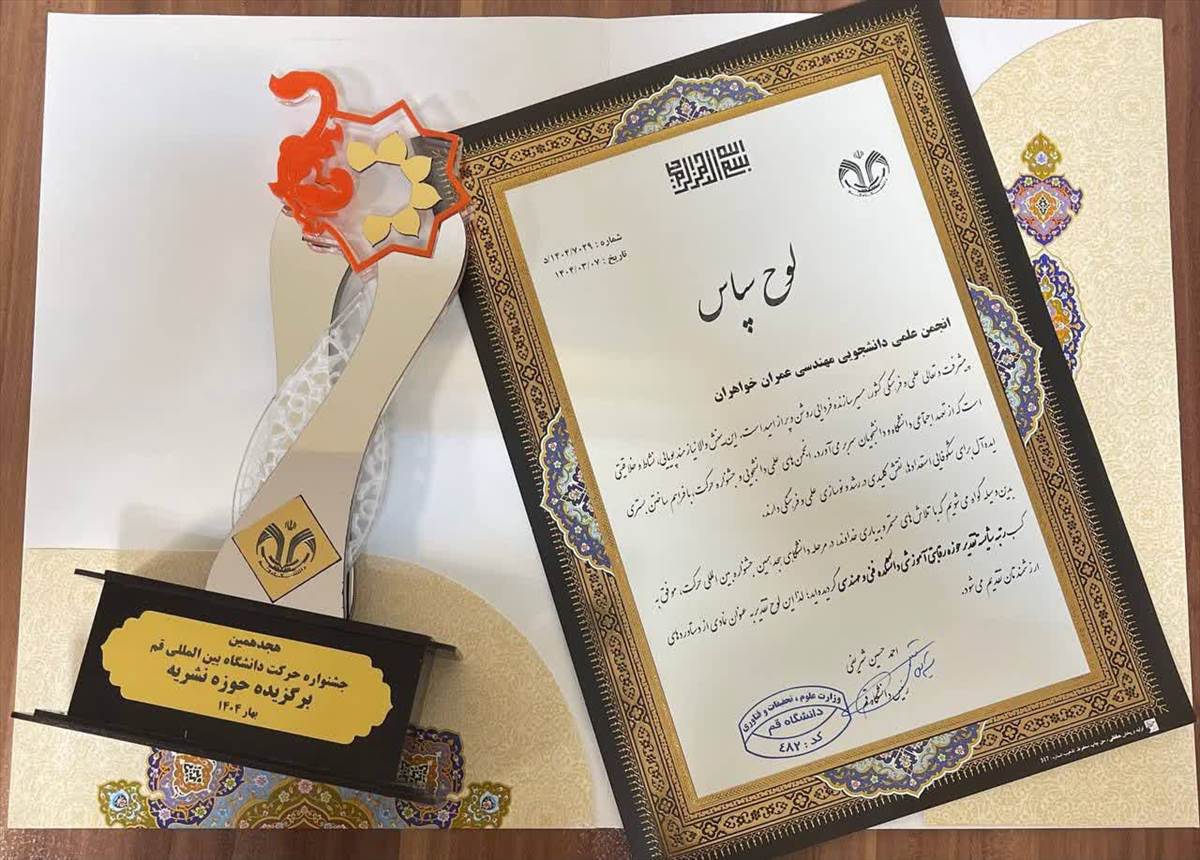 بسم الله الرحمن الرحیم
شماره : ۵/۱۴۰۴/۷۰۲۹
تاریخ : ۱۴۰۴/۰۳/۰۷
لوح سپاس
انجمن علمی دانشجویی مهندسی عمران خواهران
پیشرفت و تعالی علمی و فرهنگی کشور، مسیر سازنده فردایی روشن و پر از امید است. این نقش والا نیازمند پویایی، نشاط و خلاقیتی
است که از تعهد اجتماعی دانشگاه و دانشجویان سر بر می آورد. انجمن های علمی دانشجویی و جشنواره حرکت، با فراهم ساختن بستری
ایده آل برای شکوفایی استعدادها، نقش کلیدی در رشد و نوسازی علمی و فرهنگی دارند.
بدین وسیله گواه می شویم که با تلاش های مستمر و به یاری خداوند، در مرحله دانشگاهی هجدهمین جشنواره بین المللی حرکت، موفق به
کسب رتبه شایسته تقدیر حوزه رقابتی آموزشی دانشکده فنی و مهندسی گردیده اید؛ لذا این لوح تقدیر به عنوان نمادی از دستاوردهای
ارزشمندتان تقدیم می شود.
احمد حسین شریفی
رئیس دانشگاه قم
وزارت علوم، تحقیقات و فناوری
دانشگاه قم
کد : ۴۸۲
هجدهمین
جشنواره حرکت دانشگاه بین المللی قم
برگزیده حوزه نشریه
بهار ۱۴۰۴